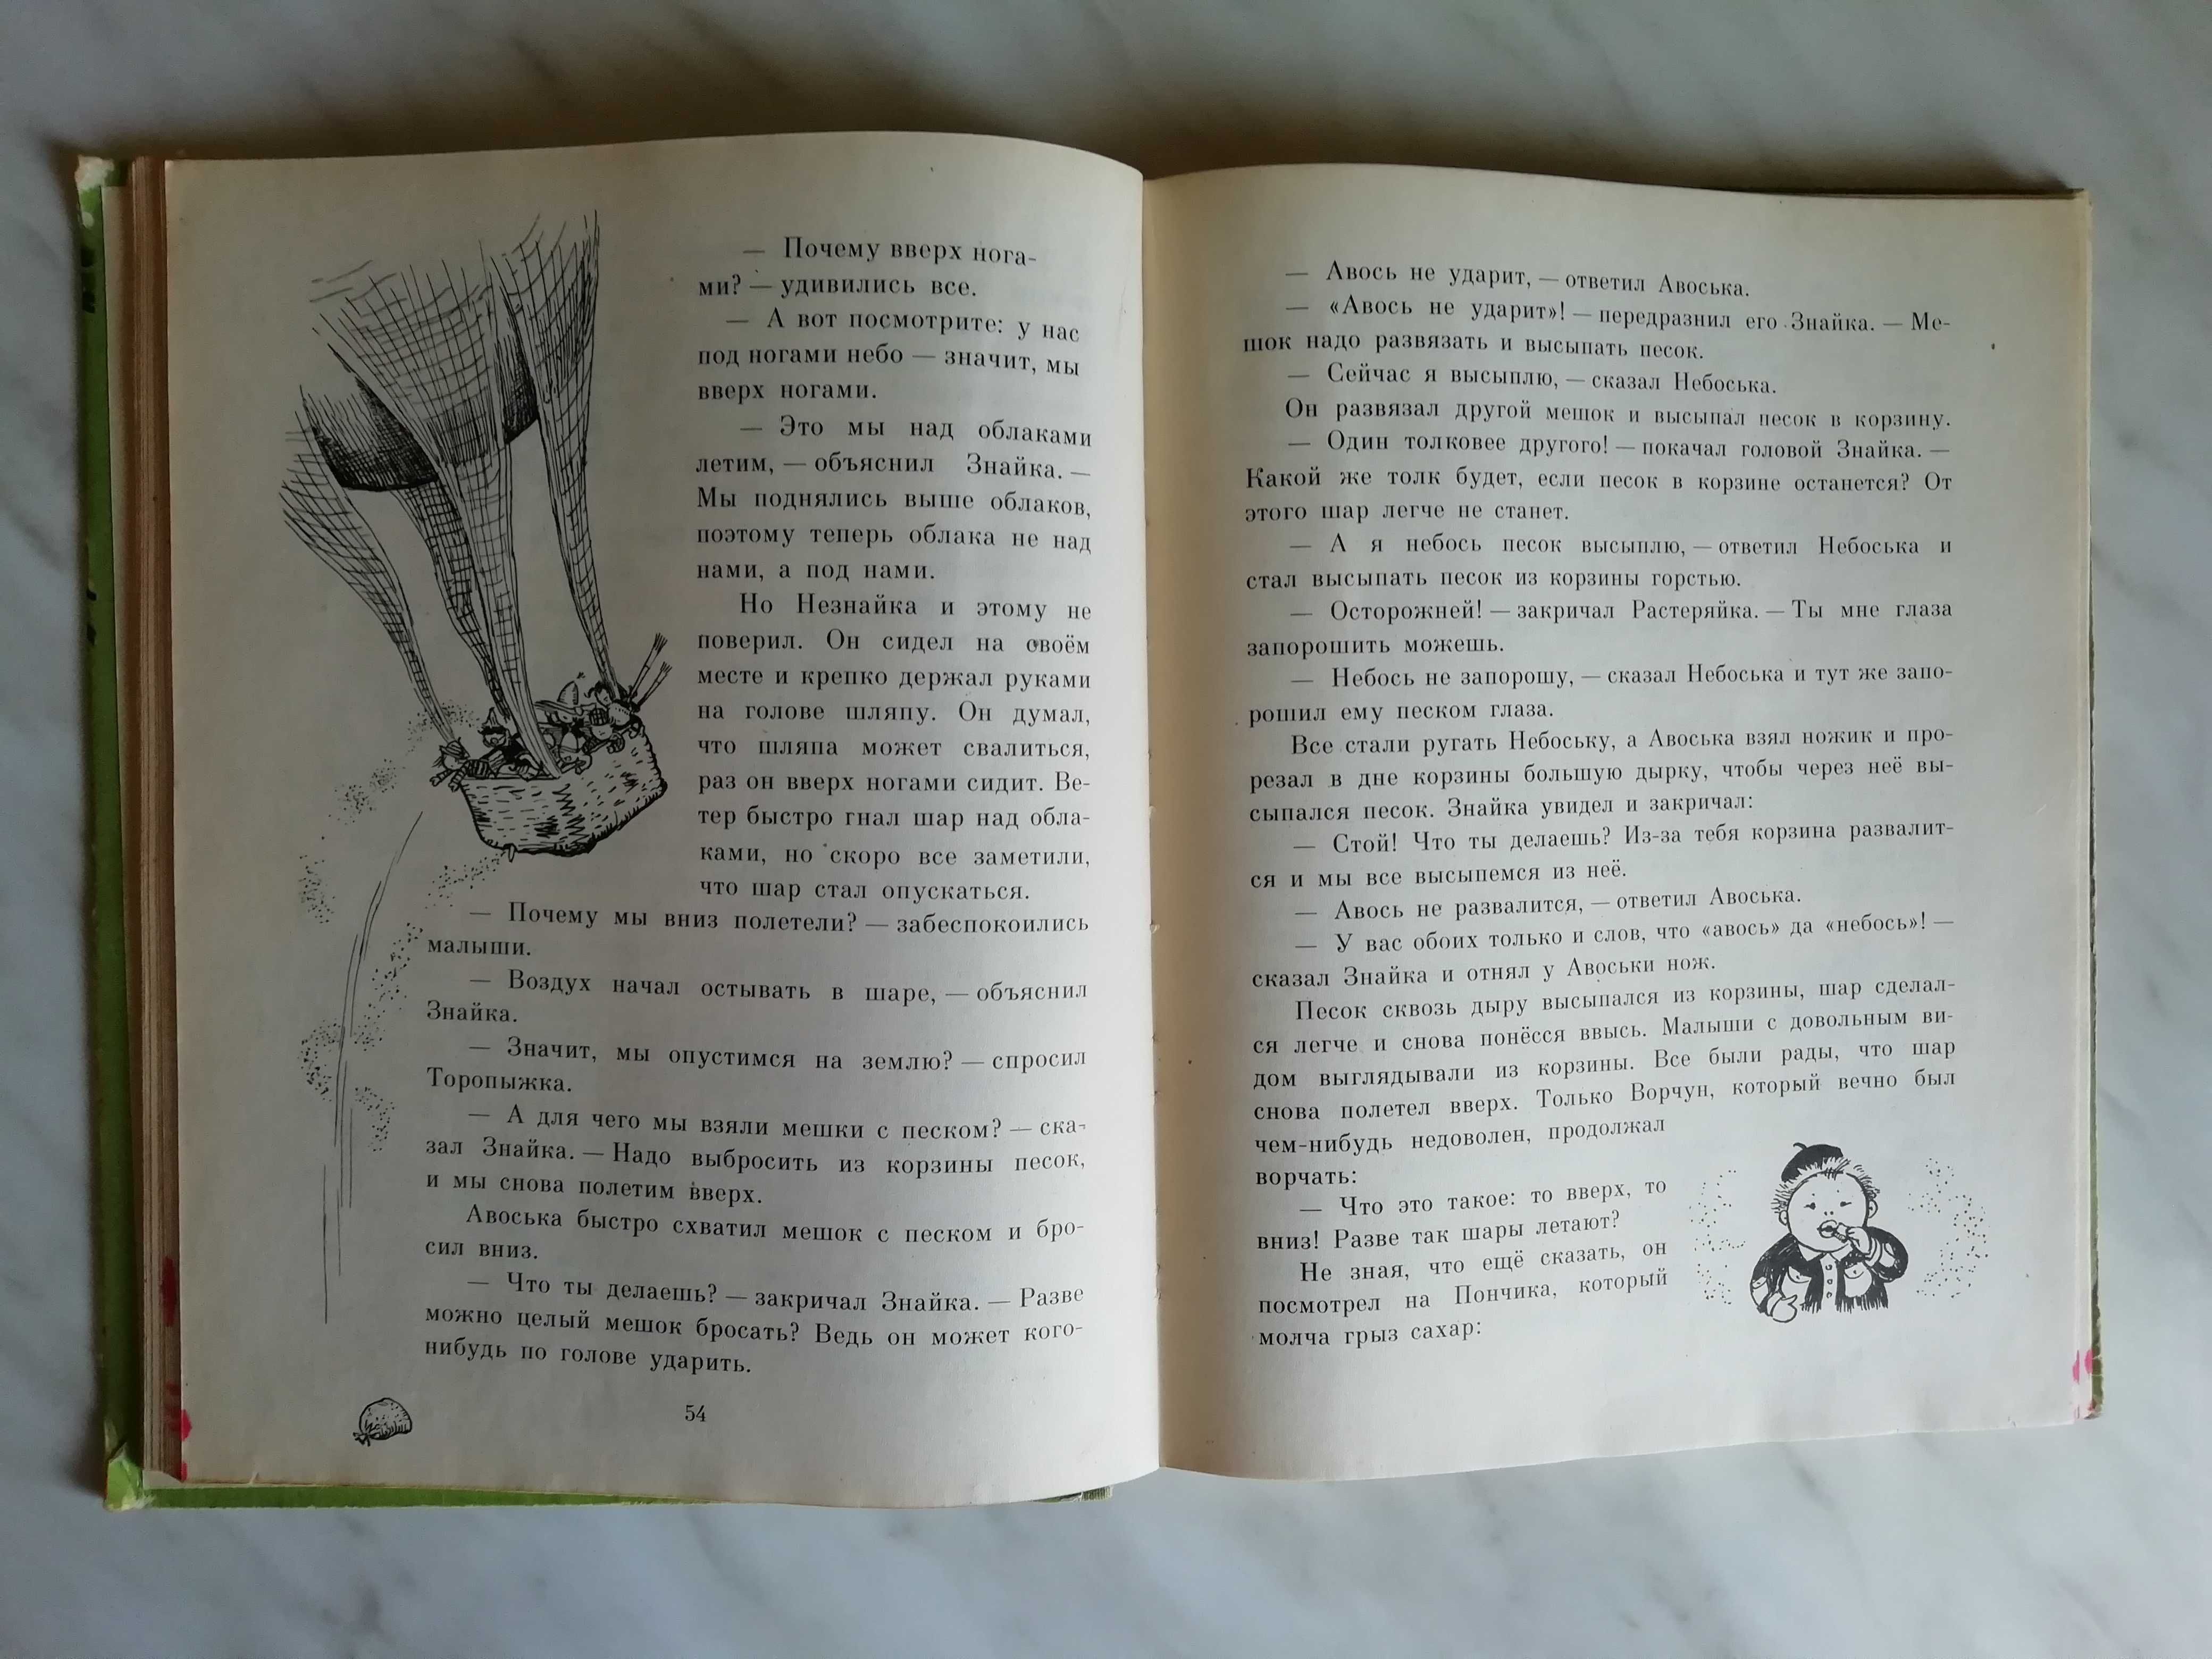 — Почему вверх нога-
ми? — удивились все.
— А вот посмотрите: у нас
под ногами небо — значит, мы
вверх ногами.
— Это мы над облаками
летим, — объяснил Знайка. —
Мы поднялись выше облаков,
поэтому теперь облака не над
нами, а под нами.
Но Незнайка и этому не
поверил. Он сидел на своём
месте и крепко держал руками
на голове шляпу. Он думал,
что шляпа может свалиться,
раз он вверх ногами сидит. Ве-
тер быстро гнал шар над обла-
ками, но скоро все заметили,
что шар стал опускаться.
— Почему мы вниз полетели? — забеспокоились
малыши.
— Воздух начал остывать в шаре, — объяснил
Знайка.
— Значит, мы опустимся на землю? — спросил
Торопыжка.
— А для чего мы взяли мешки с песком? — ска-
зал Знайка. — Надо выбросить из корзины песок,
и мы снова полетим вверх.
Авоська быстро схватил мешок с песком и бро-
сил вниз.
— Что ты делаешь? — закричал Знайка. — Разве
можно целый мешок бросать? Ведь он может кого-
нибудь по голове ударить.
54
— Авось не ударит, — ответил Авоська.
— «Авось не ударит»! — передразнил его Знайка. — Ме-
шок надо развязать и высыпать песок.
— Сейчас я высыплю, — сказал Небоська.
Он развязал другой мешок и высыпал песок в корзину.
— Один толковее другого! — покачал головой Знайка. —
Какой же толк будет, если песок в корзине останется? От
этого шар легче не станет.
— А я небось песок высыплю, — ответил Небоська и
стал высыпать песок из корзины горстью.
— Осторожней! — закричал Растеряйка. — Ты мне глаза
запорошить можешь.
— Небось не запорошу, — сказал Небоська и тут же запо-
рошил ему песком глаза.
Все стали ругать Небоську, а Авоська взял ножик и про-
резал в дне корзины большую дырку, чтобы через неё вы-
сыпался песок. Знайка увидел и закричал:
— Стой! Что ты делаешь? Из-за тебя корзина развалит-
ся и мы все высыпемся из неё.
— Авось не развалится, — ответил Авоська.
— У вас обоих только и слов, что «авось» да «небось»! —
сказал Знайка и отнял у Авоськи нож.
Песок сквозь дыру высыпался из корзины, шар сделал-
ся легче и снова понёсся ввысь. Малыши с довольным ви-
дом выглядывали из корзины. Все были рады, что шар
снова полетел вверх. Только Ворчун, который вечно был
чем-нибудь недоволен, продолжал
ворчать:
— Что это такое: то вверх, то
вниз! Разве так шары летают?
Не зная, что ещё сказать, он
посмотрел на Пончика, который
молча грыз сахар: